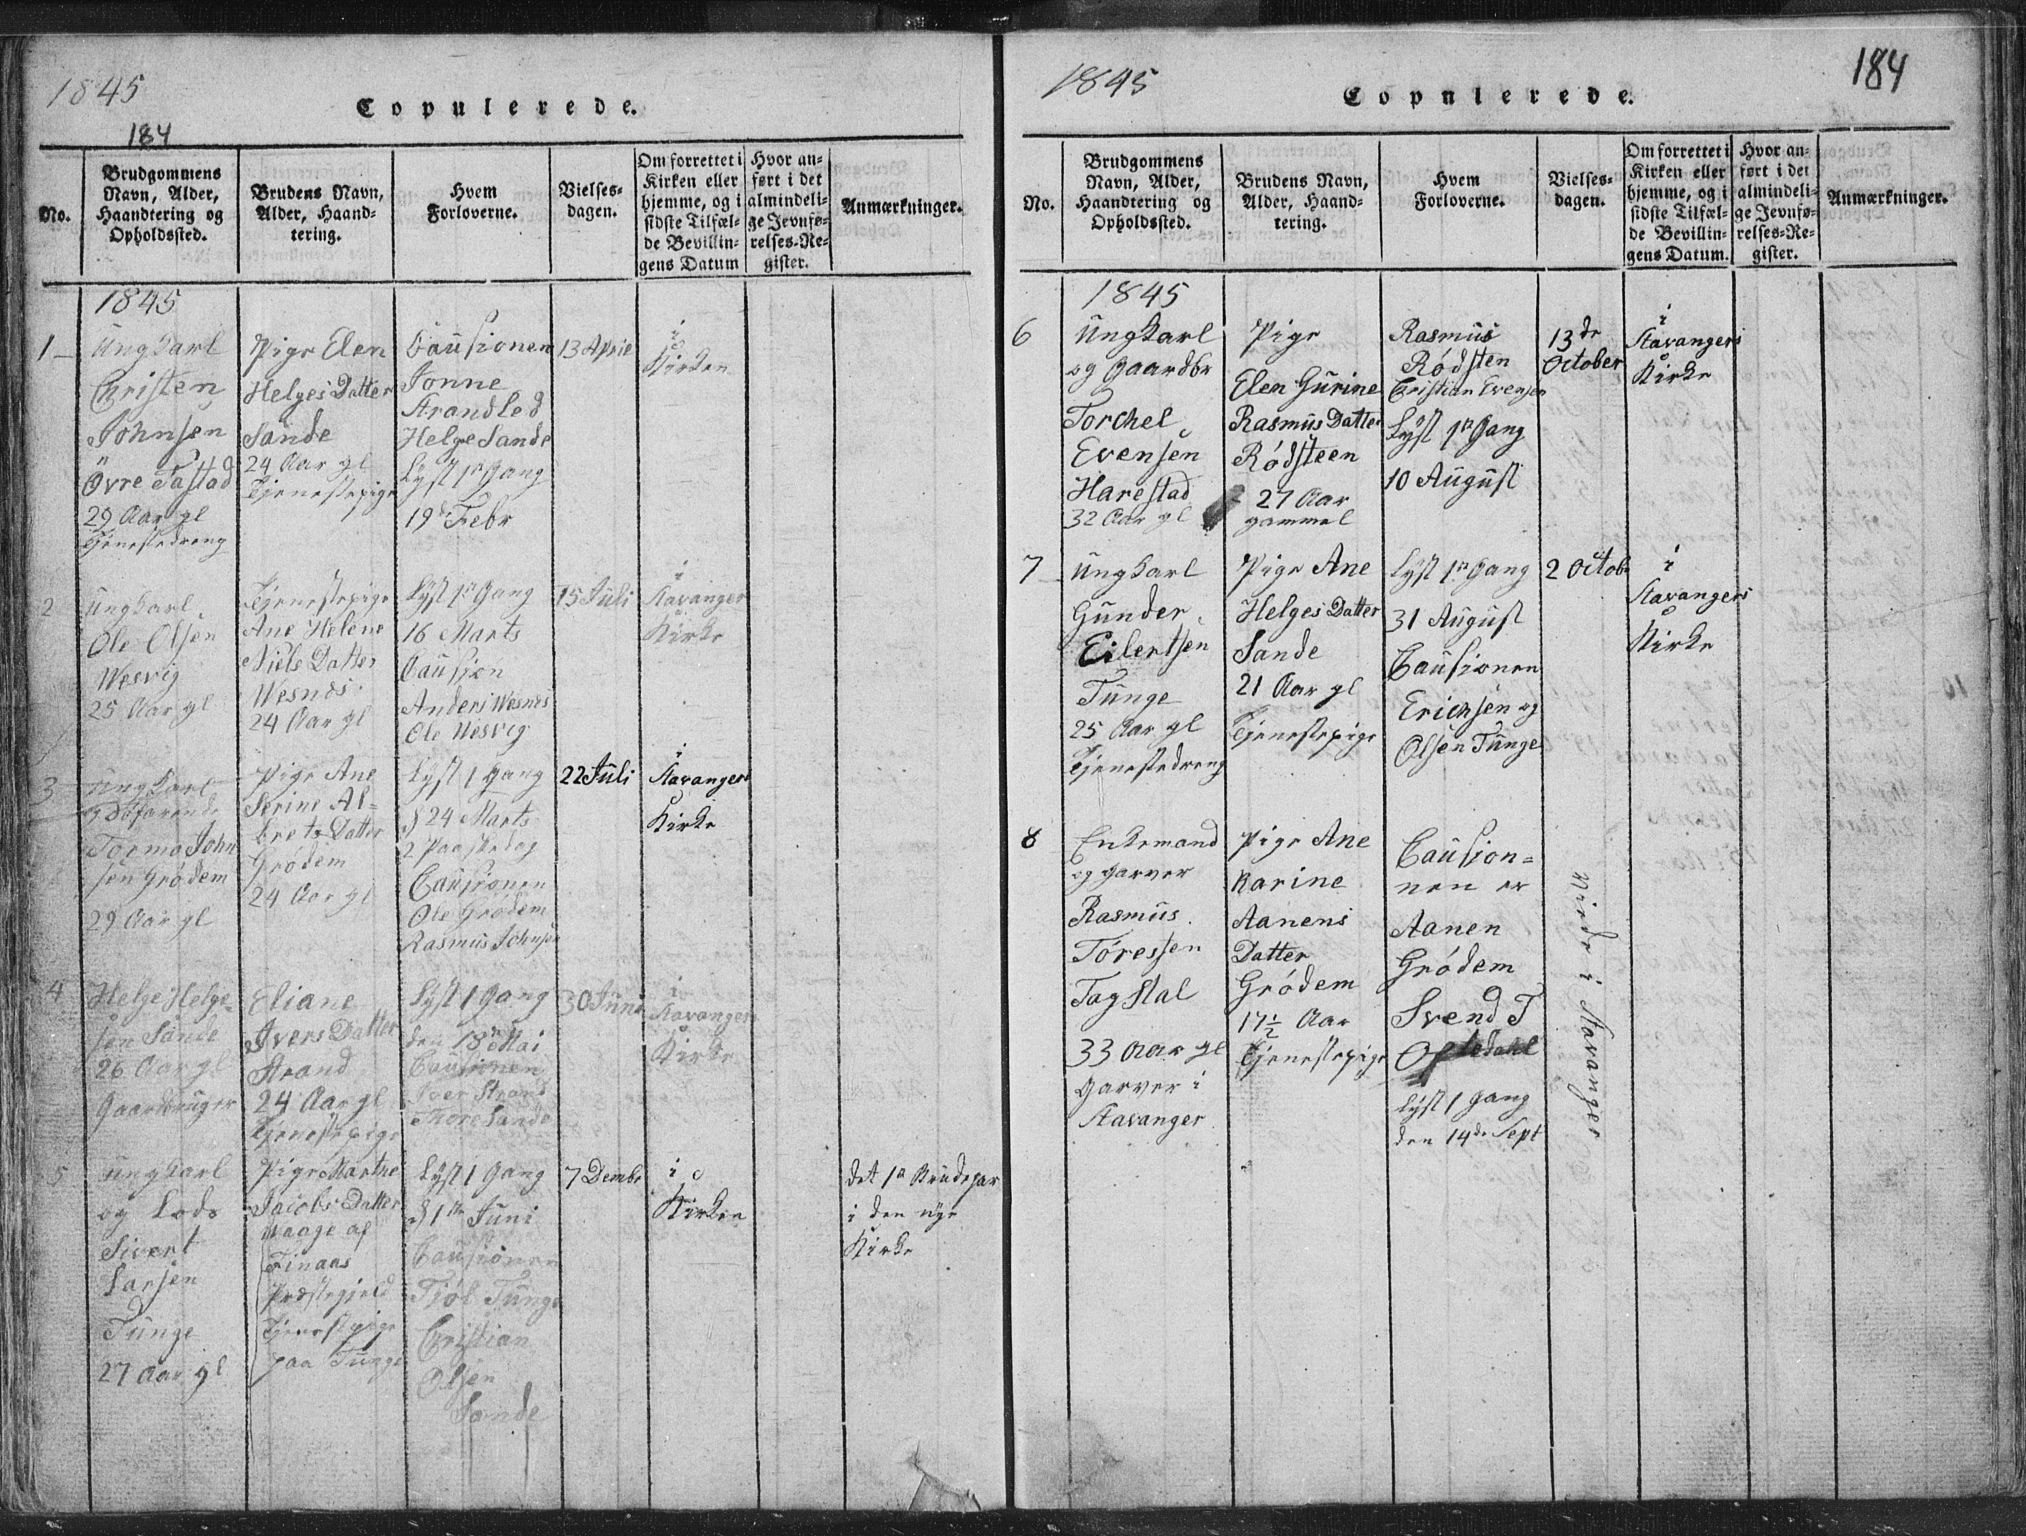 1845
Copulerede.
184
No.
Brudgommens
Navn, Alder,
Haandtering og
Opholdssted.
Brudens Navn,
Alder, Haand-
tering.
Hvem
Forloverne.
Vielses-
dagen.
Om forrettet i
Kirken eller
hjemme, og i
sidste Tilfæl-
de Bevillin-
gens Datum
Hvor an-
ført i det
almindeli-
ge Jevnfø-
relses-Re-
gister.
Anmærkninger.
1845
1
Ungkarl
Christen
Johnsen
Övre Tastad
29 Aar gl
Tjenestedreng
Pige Elen
Helges Datter
Sande
24 Aar gl
Tjenestepige
Causionen
Jonne
Strandled
Helge Sande
Lyst 1ste Gang
19de Febr
13 April
i
Kirken
2
Ungkarl
Ole Olsen
Wesvig
25 Aar gl
Tjenestepige
Ane Helene
Niels Datter
Wesnes
24 Aar gl
Lyst 1ste Gang
16 Marts
Causion
Anders Wesnes
Ole Wesvig
15 Juli
i
Stavanger
Kirke
3
Ungkarl
og Söfarende
Tormo John
sen Grödem
29 Aar gl
Pige Ane
Serine Al-
brets Datter
Grödem
24 Aar gl
Lyst 1 Gang
d 24 Marts
2 Paaskedag
Causionen
Ole Grödem
Rasmus Johnsen
22 Juli
i
Stavanger
Kirke
4
Helge Helge-
sen Sande
26 Aar gl
Gaardbruger
Eliane
Ivers Datter
Strand
24 Aar gl
Tjenestepige
Lyst 1 Gang
den 18de Mai
Causionen
Iver Strand
Thore Sande
30 Juni
i
Stavangers
Kirke
5
Ungkarl
og Lods
Sivert
Larsen
Tunge
27 Aar gl
Pige Marthe
Jacobs Datter
Waage af
Finaas
Præstegjeld
Tjenestpige
paa Tunge
Lyst 1 Gang
d 1ste Juni
Causionen
Tjöl Tunge
Christian
Olsen
Sande
7 Dembr
i
Kirken
det 1ste Brudepar
i den nye
Kirke
1845
Copulerede.
184
No.
Brudgommens
Navn, Alder,
Haandtering og
Opholdssted.
Brudens Navn,
Alder, Haand-
tering.
Hvem
Forloverne.
Vielses-
dagen.
Om forrettet i
Kirken eller
hjemme, og i
sidste Tilfæl-
de Bevillin-
gens Datum.
Hvor an-
ført i det
almindeli-
ge Jevnfø-
relses-Re-
gister.
Anmærkninger.
1845
6
Ungkarl
og Gaardbr
Torchel
Evensen
Harestad
32 Aar gl
Pige
Elen Gurine
Rasmus Datter
Rödsteen
27 Aar
gammel
Rasmus
Rödsten
Cristian Evensen
Lyst 1ste Gang
10 August
13de
October
i
Stavangers
Kirke
7
Ungkarl
Gunder
Eilertsen
Tunge
25 Aar gl
Tjenestedreng
Pige Ane
Helges Datter
Sande
21 Aar gl
Tjenestepige
Lyst 1ste Gang
31 August
Causionen
Erichsen og
Olsen Tunge
2 Octob
i
Stavangers
Kirke
8
Enkemand
og garver
Rasmus
Töressen
Tagstal
33 Aar gl
Garver i
Stavanger
Pige Ane
Karine
Aanens
Datter
Grödem
17½ Aar
Tjenestepige
Causion=
nen er
Aanen
Grödem
Svend T
Oftedahl
Lyst 1 Gang
den 14de Sept
Viede i Stavanger